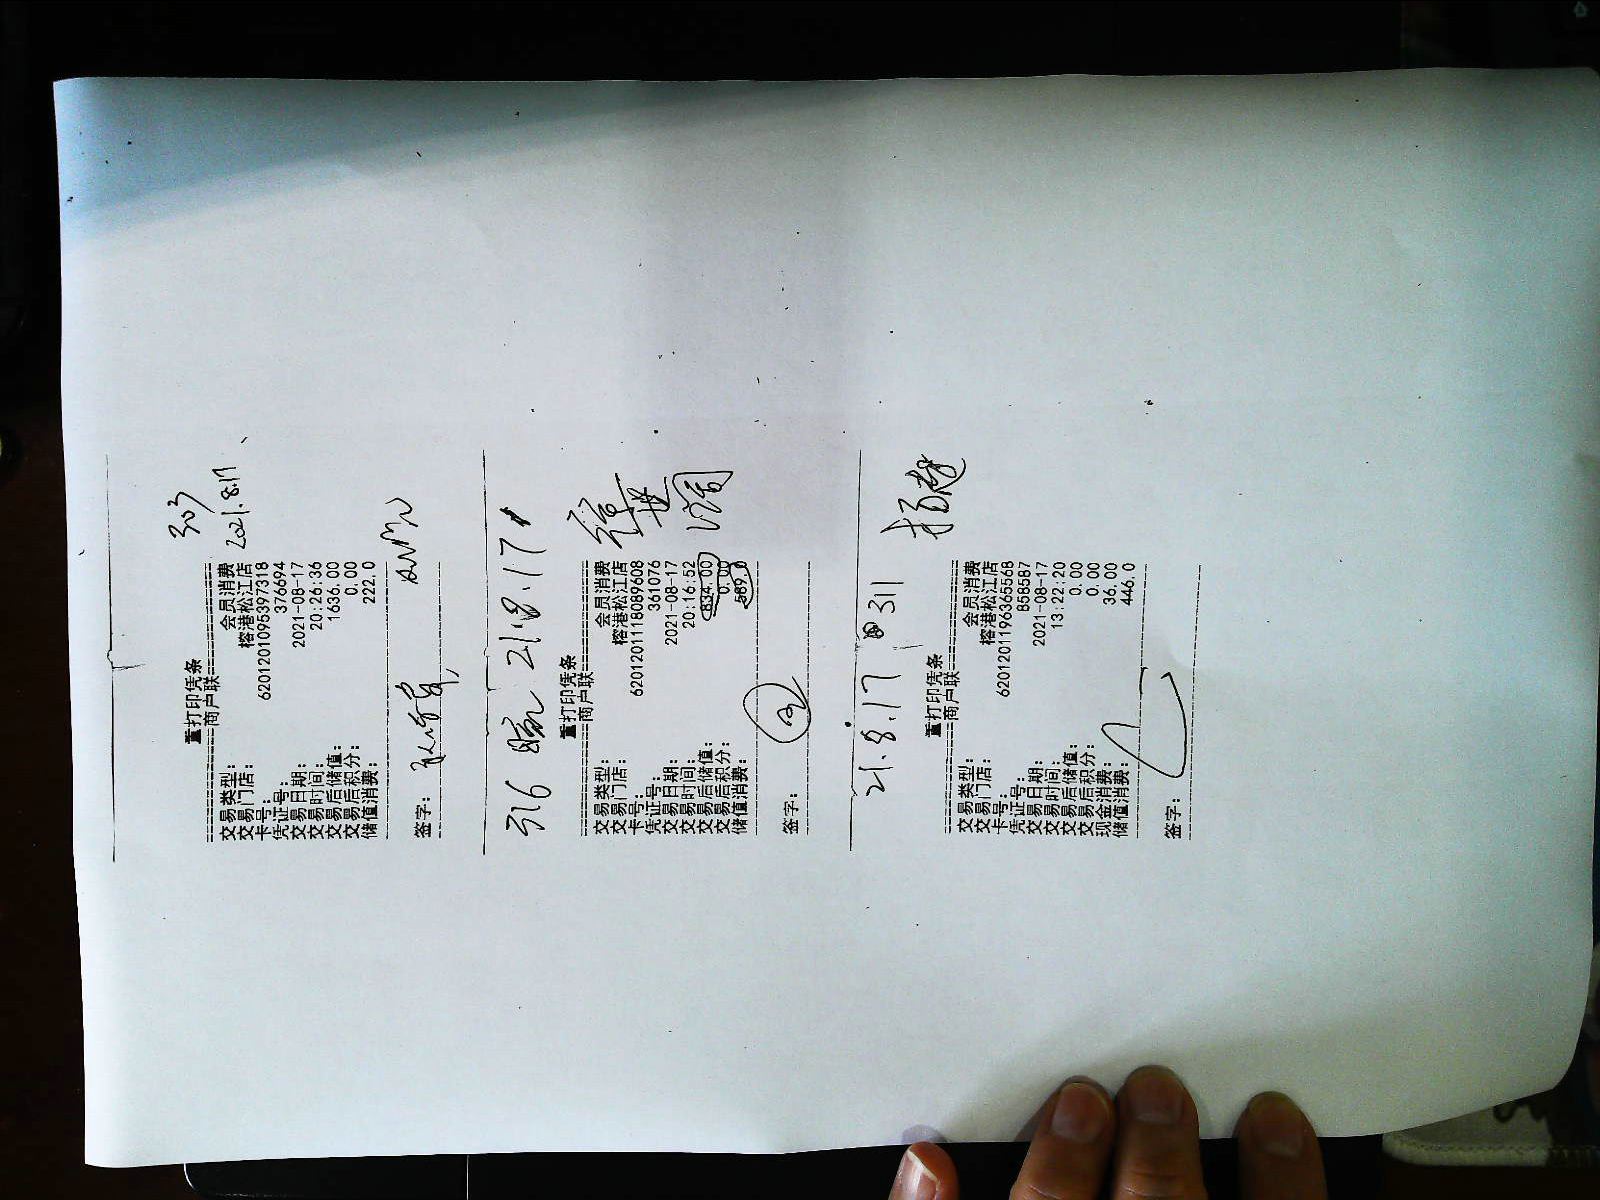 303
2021.8.17
重打印凭条
商户联
交易类型： 会员消费
交易门店： 榕港松江店
卡号： 6201201095397318
凭证号： 376694
交易日期： 2021-08-17
交易时间： 20:26:36
交易后储值： 1636.00
交易后积分： 0.00
储值消费： 222.0
签字：
316 21.8.17
重打印凭条
商户联
交易类型： 会员消费
交易门店： 榕港松江店
卡号： 6201201118089608
凭证号： 361076
交易日期： 2021-08-17
交易时间： 20:16:52
交易后储值： 834.00
交易后积分： 0.00
储值消费： 589.0
签字：
21.8.17 311
重打印凭条
商户联
交易类型： 会员消费
交易门店： 榕港松江店
卡号： 6201201196365568
凭证号： 858587
交易日期： 2021-08-17
交易时间： 13:22:20
交易后储值： 0.00
交易后积分： 0.00
现金消费： 36.00
储值消费： 446.0
签字：